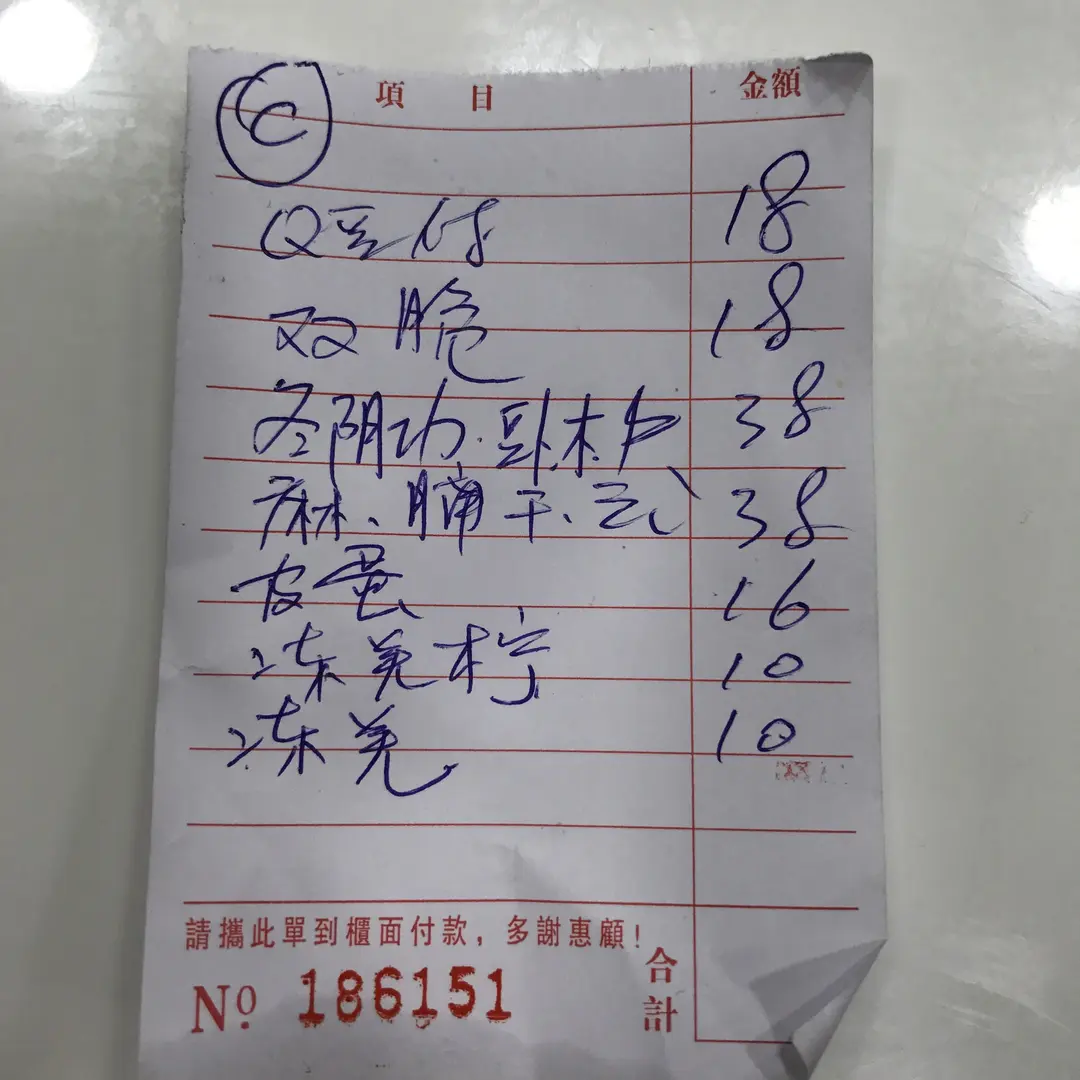 C
項 目 金額
Q豆付 18
双脆 18
冬阴功. 38
麻、腩 干、 38
皮蛋 16
冻羌柠 10
冻羌 10
請攜此單到櫃面付款，多謝惠顧！
合計
Nº. 186151